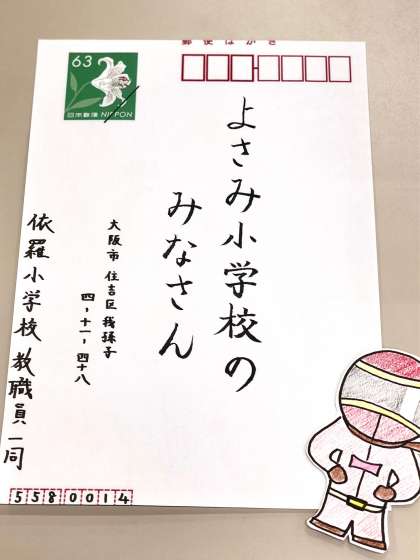 郵便はがき
63
日本郵便 NIPPON
よさみ小学校の
みなさん
大阪市 住吉区 我孫子
四-十一-四十八
依羅小学校 教職員一同
5580014